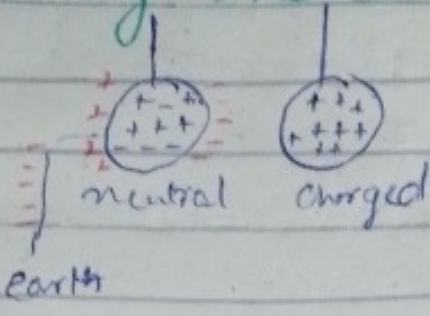 neutral charged
earth